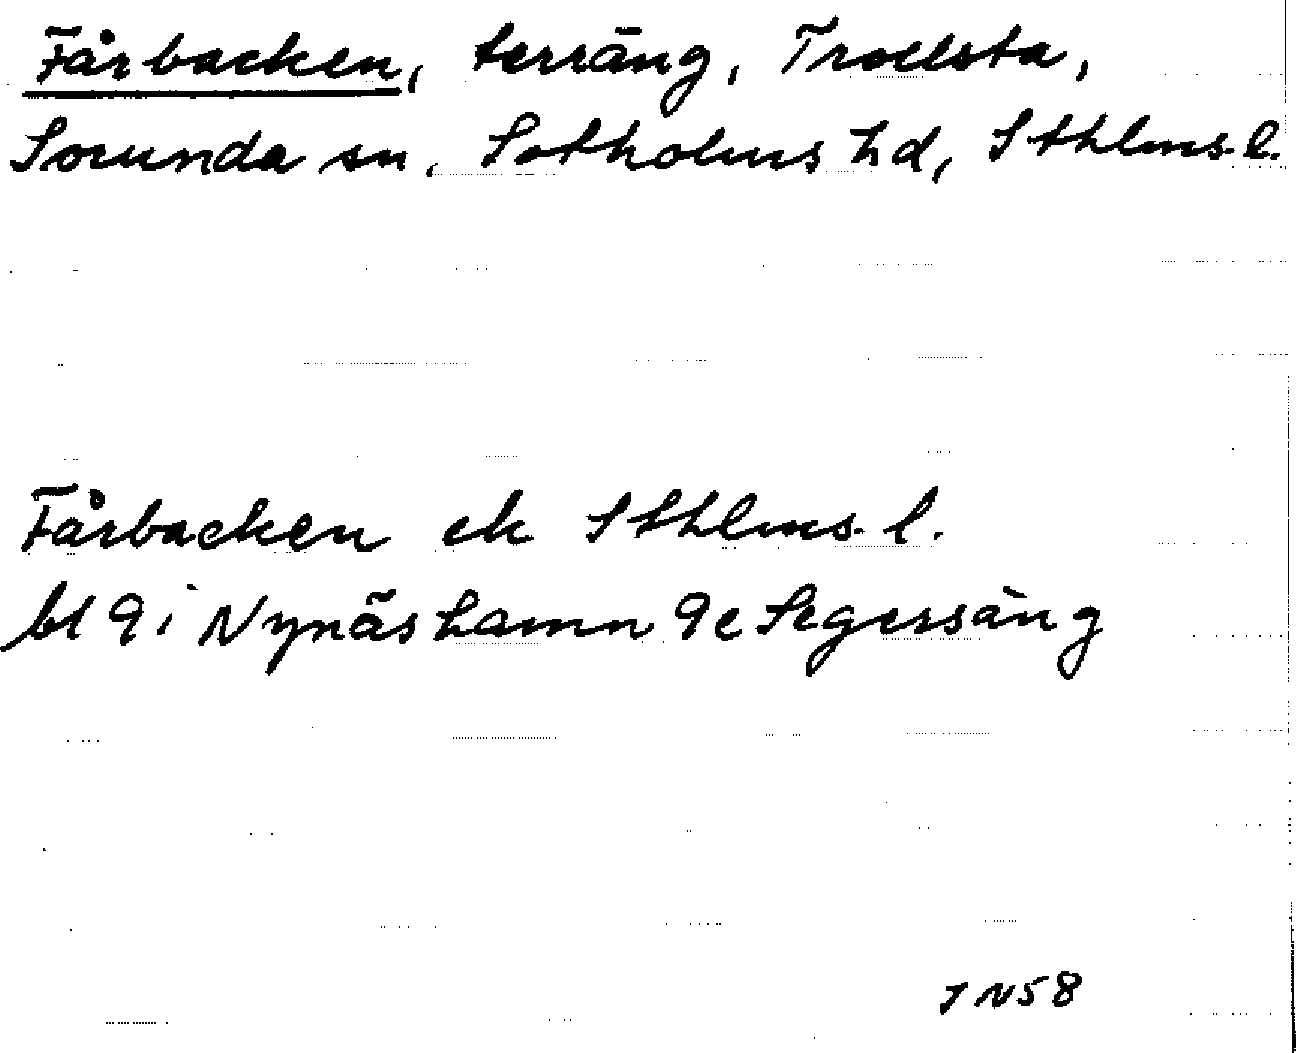 Fårbacken, terräng, Trollsta,
Sorunda sn, Sotholms hd, Sthlms l.
Fårbacken ek Sthlms l.
bl 9 i Nynäshamn 9e Segersäng
JN58